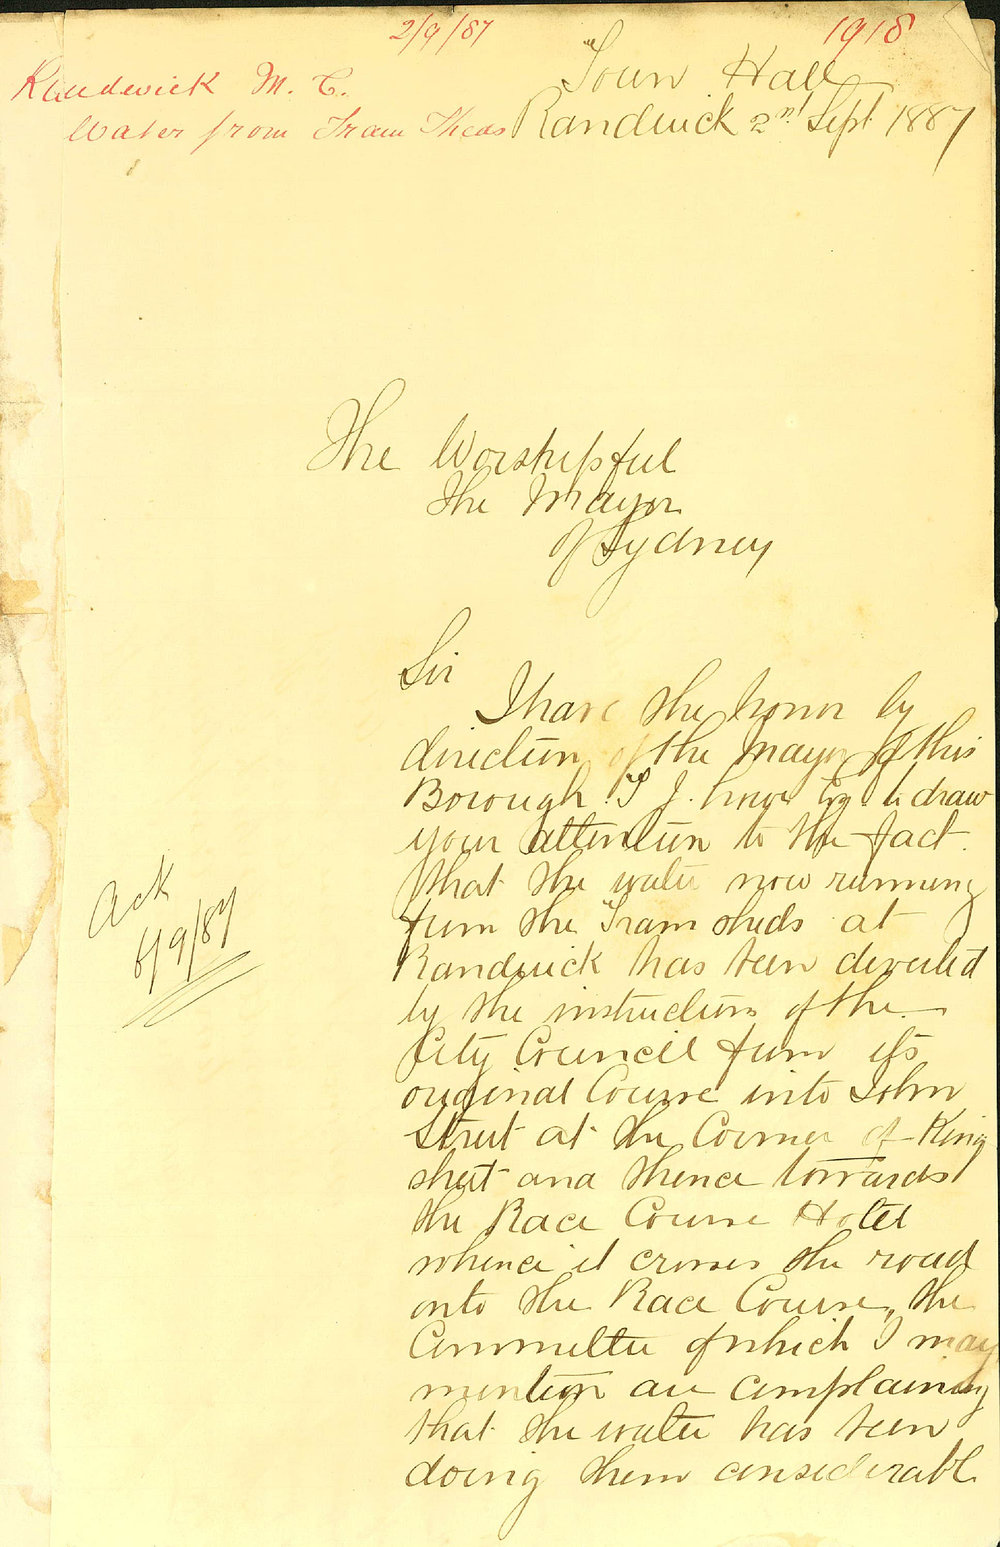 2/9/87
1918
Randwick M. C.
Water from Tram Sheds
Town Hall
Randwick 2nd Sept 1887
The Worshipful
the Mayor
of Sydney
Sir
I have the honor by
direction of the Mayor of this
Borough. Esq. to draw
your attention to the fact
that the water now running
from the Tram sheds at
Randwick has been diverted
by the instructions of the
City Council from its
original Course into John
Street at the Corner of King
street and thence towards
the Race Course Hotel
whence it crosses the road
onto the Race Course, the
Committee of which I may
mention are complaining
that the water has been
doing them considerable
Ack
6/9/87